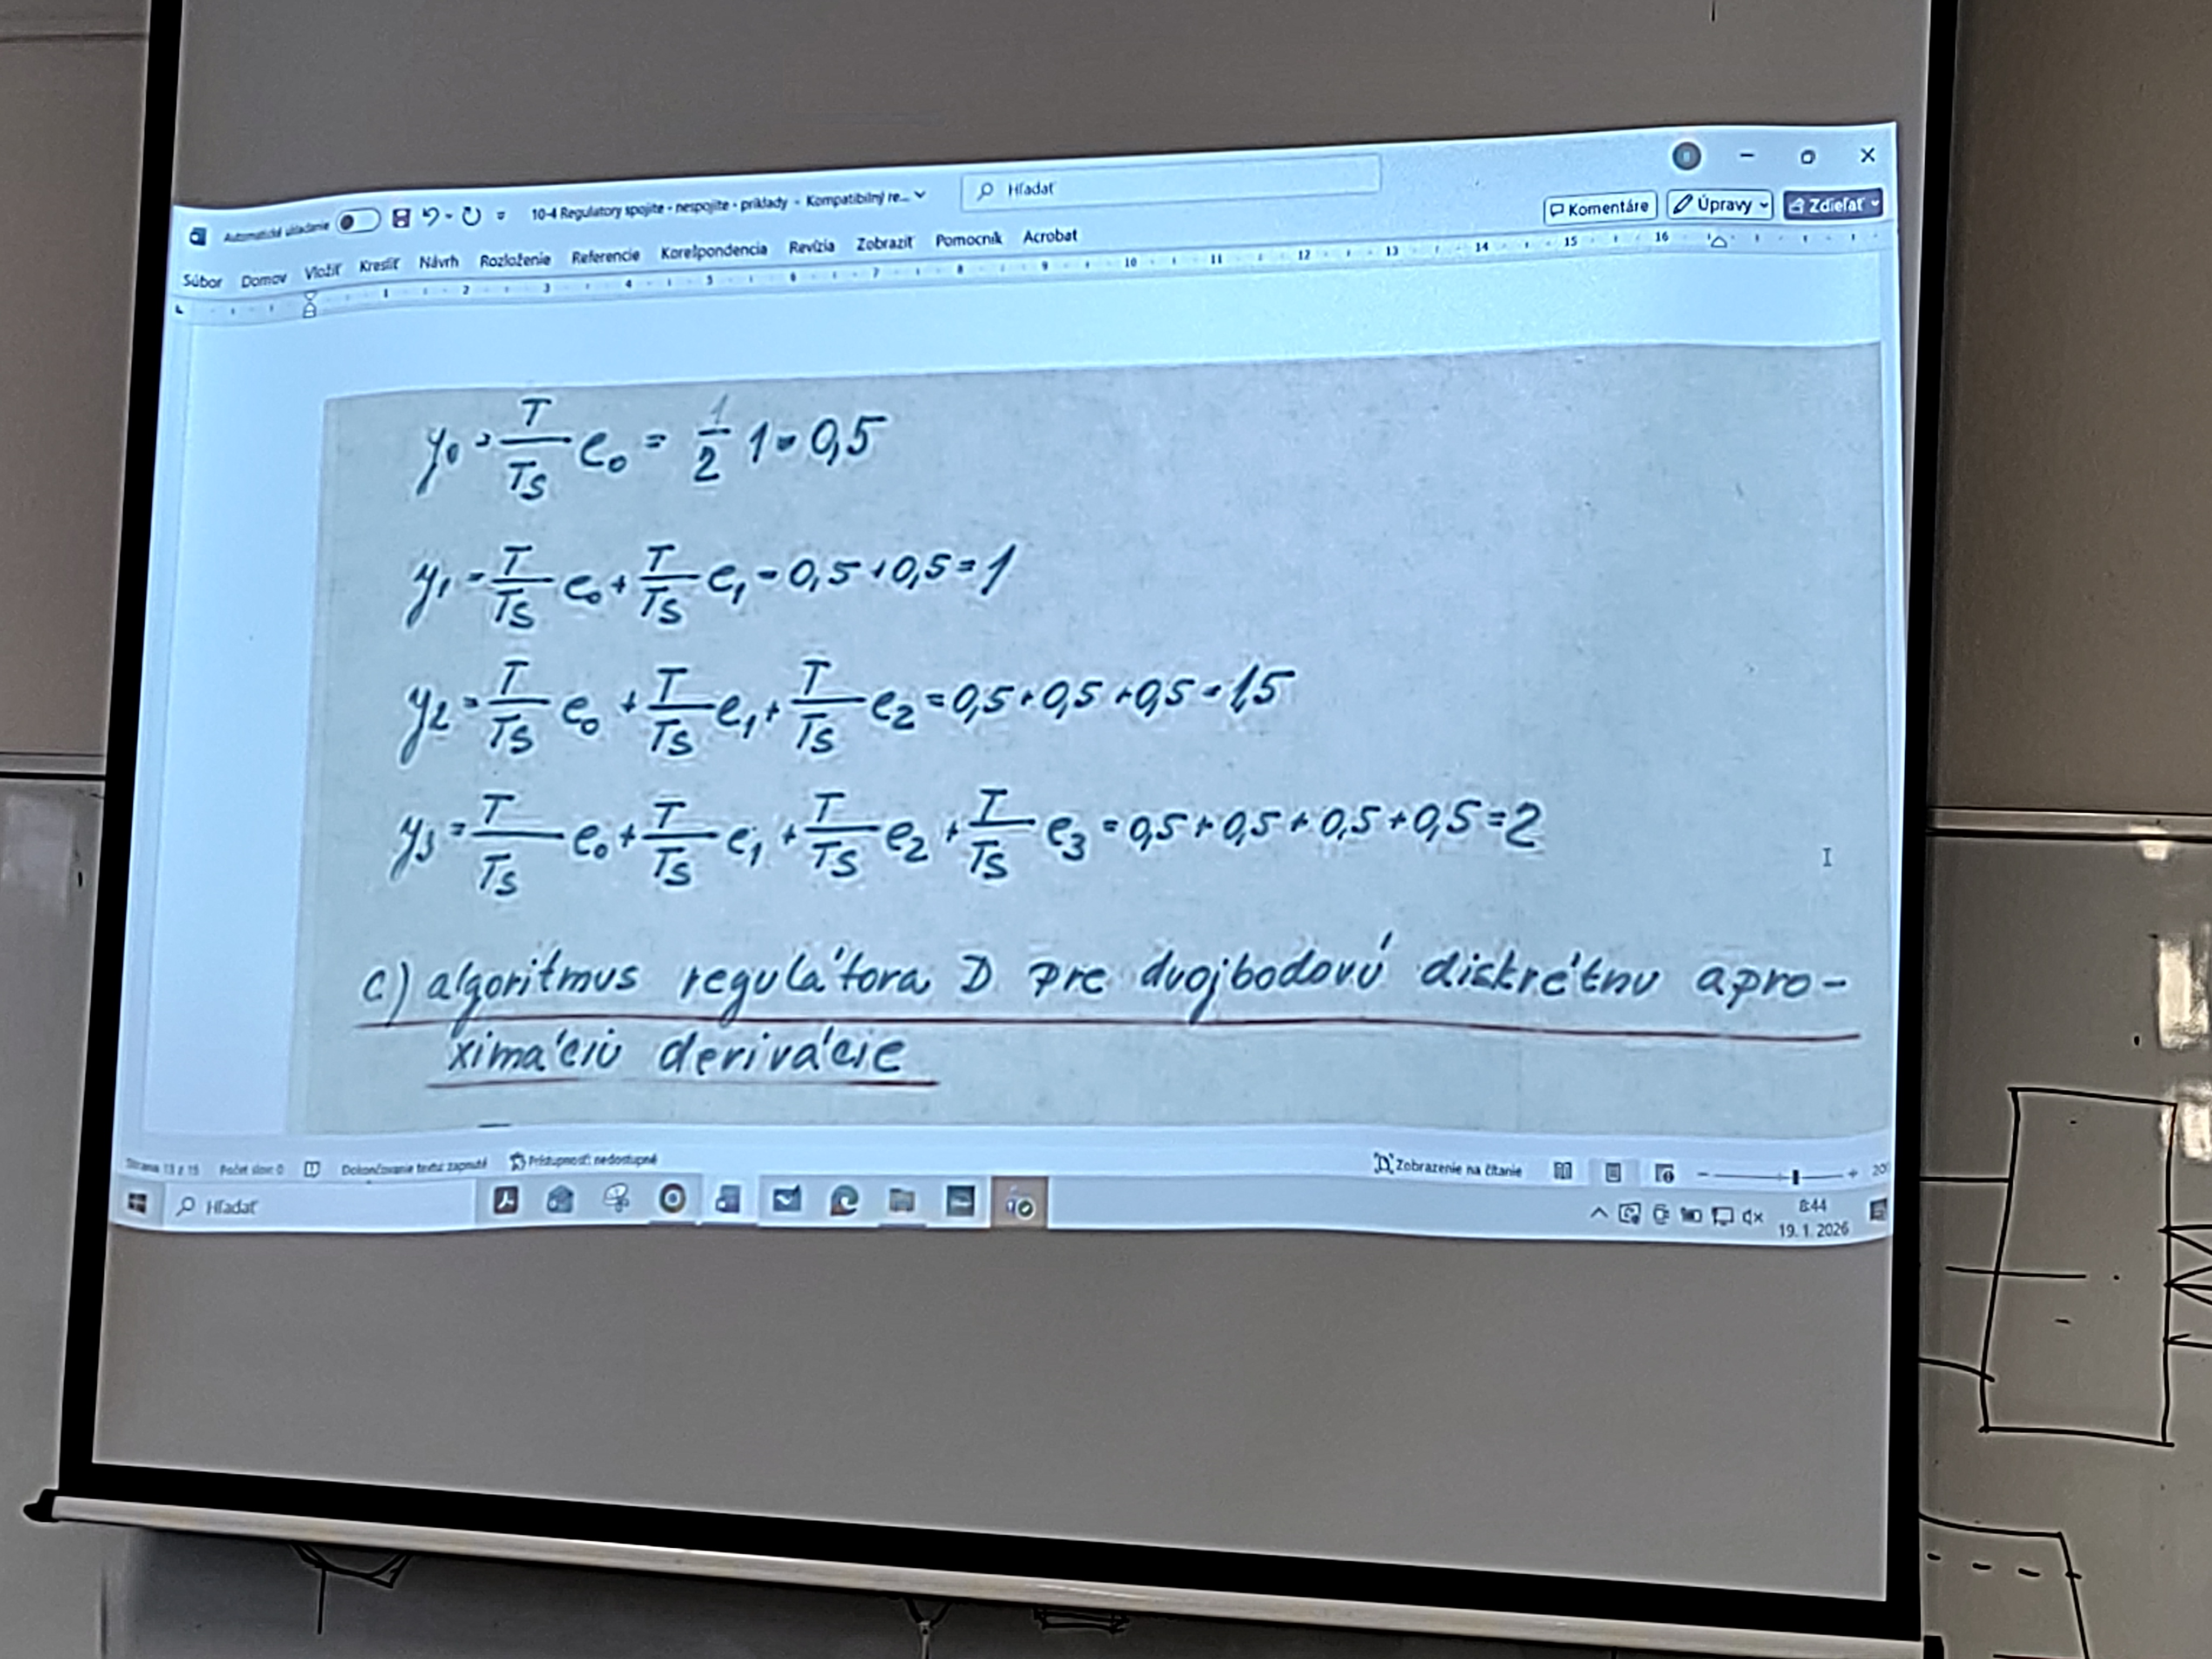 Automatické ukladanie 10-4 Regulatory spojite - nespojite - priklady - Kompatibilný re... Hľadať
Komentáre Úpravy Zdieľať
Súbor Domov Vložiť Kresliť Návrh Rozloženie Referencie Korešpondencia Revízia Zobraziť Pomocník Acrobat
1 2 3 4 5 6 7 8 9 10 11 12 13 14 15 16
y₀ = T/TS e₀ = 1/2 1 = 0,5
y₁ = T/TS e₀ + T/TS e₁ = 0,5 + 0,5 = 1
y₂ = T/TS e₀ + T/TS e₁ + T/TS e₂ = 0,5 + 0,5 + 0,5 = 1,5
y₃ = T/TS e₀ + T/TS e₁ + T/TS e₂ + T/TS e₃ = 0,5 + 0,5 + 0,5 + 0,5 = 2
c) algoritmus regulátora D pre dvojbodovú diskrétnu apro-
ximáciu derivácie
Strana 13 z 15 Počet slov: 0 Dokončovanie textu: zapnuté Prístupnosť: nedostupné Zobrazenie na čítanie
Hľadať
8:44
19. 1. 2026